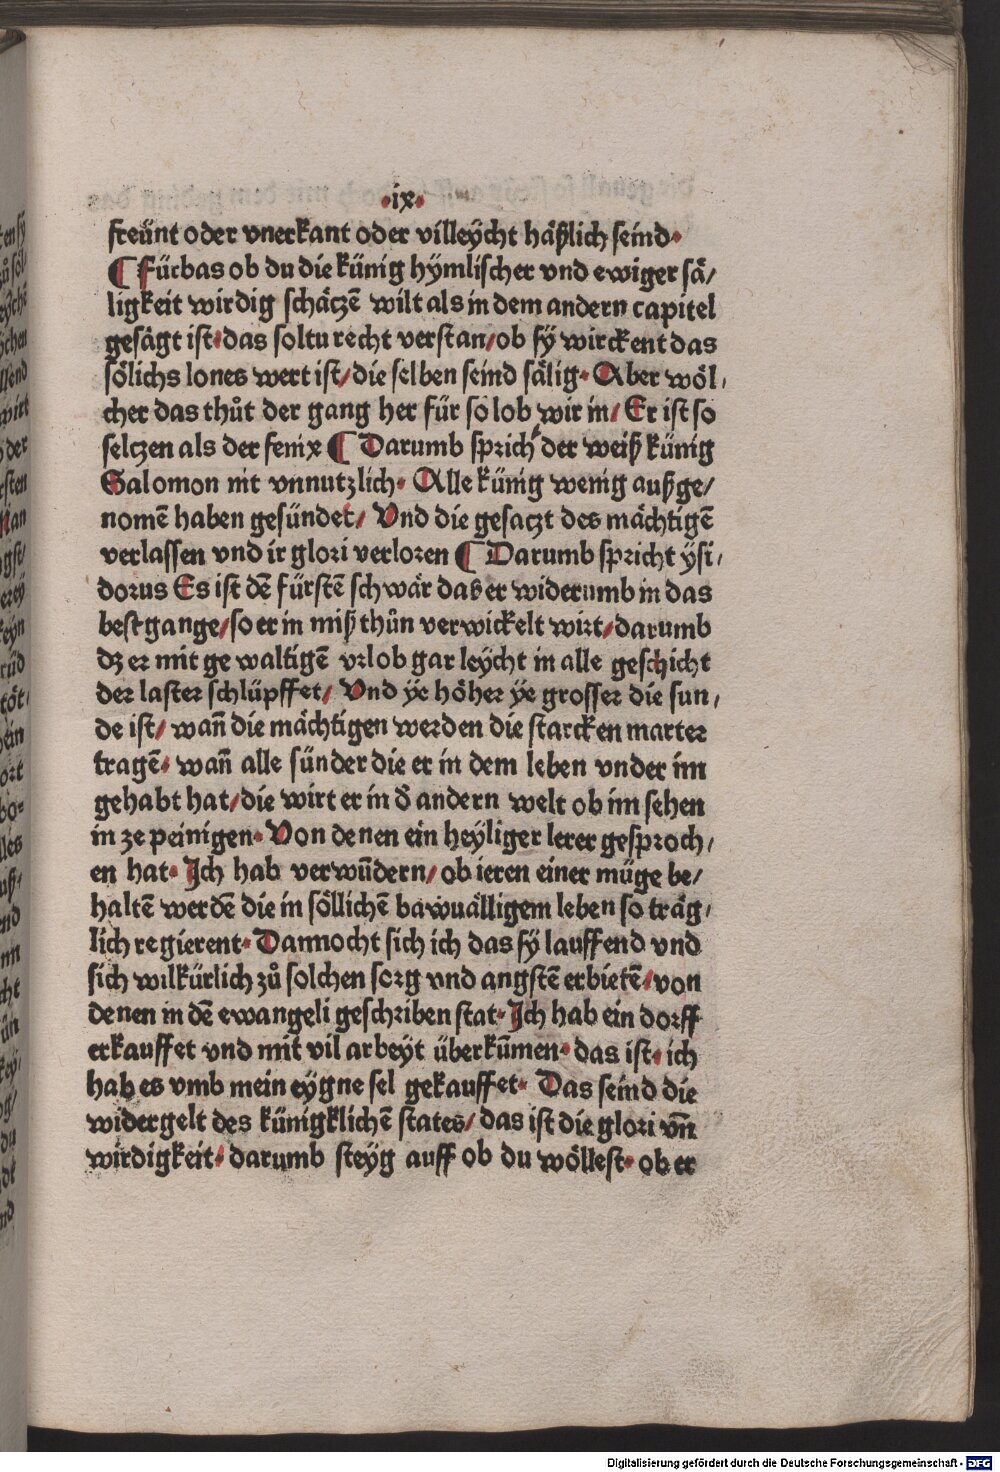 ·ix·
freünt oder vnerkant oder villeycht häßlich seind·
¶ Fürbas ob du die künig hymlischer vnd ewiger sä/
ligkeit wirdig schäczē wilt als in dem andern capitel
gesägt ist·das soltu recht verstan/ob sy wirckent das
sölichs lones wert ist/die selben seind sälig· Aber wöl,
cher das thůt der gang her für so lob wir in/ Er ist so
selczen als der fenix ¶ Darumb sprich' der weiß künig
Salomon nit vnnutzlich· Alle künig wenig außge/
nomē haben gesündet/ Vnd die gesaczt des mächtigē
verlassen vnd ir glori verloren ¶ Darumb spricht ysi,
dorus Es ist dē fürstē schwär das er widerumb in das
best gange/so er in miß thůn verwickelt wirt/darumb
dz er mit gewaltigē vrlob gar leycht in alle geschicht
der laster schlüpffet/ Vnd ye höher ye grosser die sun,
de ist/ wañ die mächtigen werden die starcken marter
tragē· wañ alle sünder die er in dem leben vnder im
gehabt hat/die wirt er in đ andern welt ob im sehen
in ze peinigen· Von denen ein heyliger lerer gesproch,
en hat· Ich hab verwūdern/ ob ieren einer müge be/
haltē werdē die in söllichē bawuälligem leben so träg,
lich regierent· Dannocht sich ich das sy lauffend vnd
sich wilkürlich zů solchen sorg vnd angstē erbietē/von
denen in dē ewangeli geschriben stat· Ich hab ein dorff
erkauffet vnd mit vil arbeyt überkūmen· das ist· ich
hab es vmb mein eygne sel gekauffet· Das seind die
widergelt des künigklichē states/ das ist die glori vñ
wirdigkeit· darumb steyg auff ob du wöllest· ob er
Digitalisierung gefördert durch die Deutsche Forschungsgemeinschaft - DFG